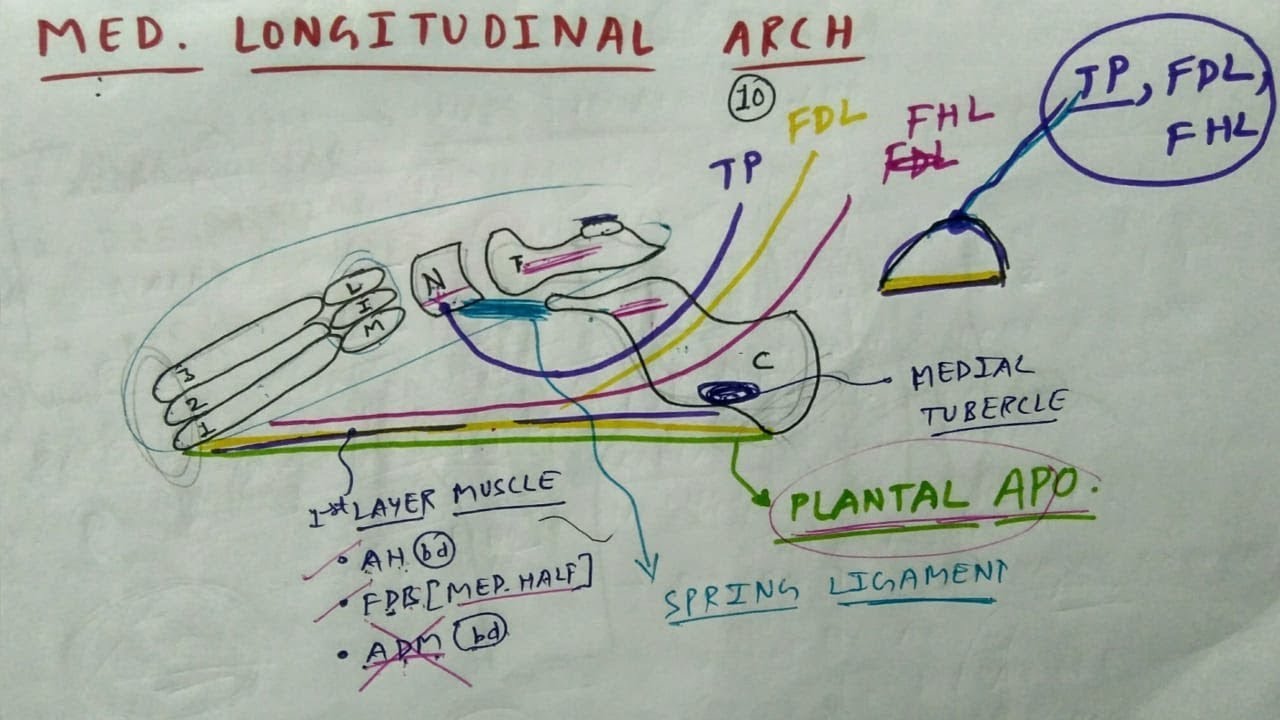 MED. LONGITUDINAL ARCH
10
TP, FDL,
FHL
FDL
FHL
FDL
TP
L
I
M
N
T
3
2
1
C
MEDIAL
TUBERCLE
PLANTAL APO.
1st LAYER MUSCLE
• AH bd
• FDB [MED. HALF]
• ADM bd
SPRING LIGAMENT